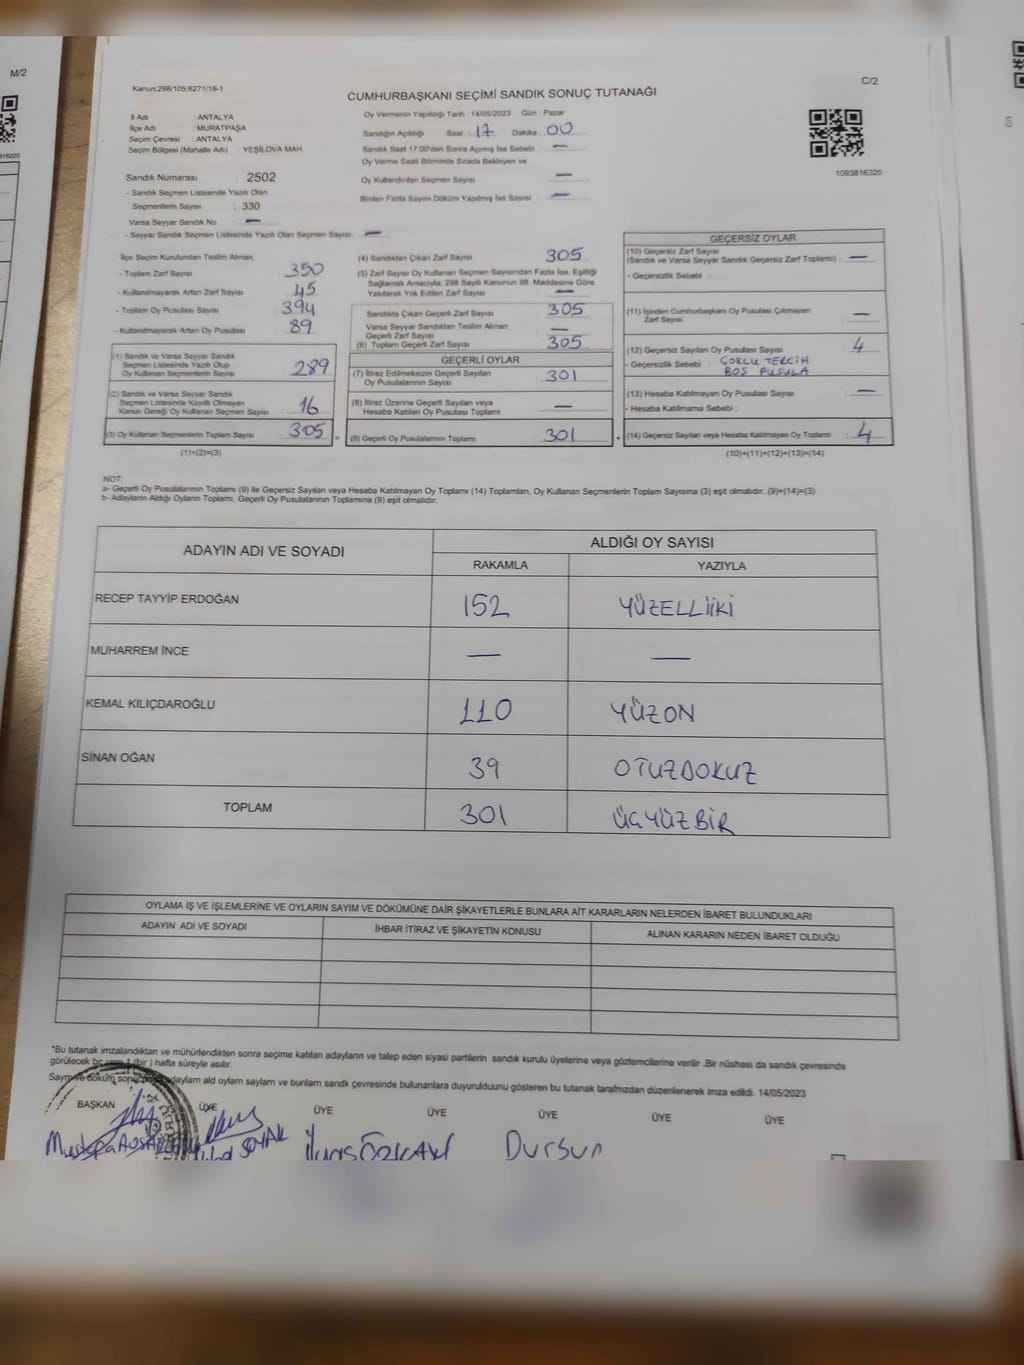 M/2
C/2
Kanun:298/105;6271/18-1
CUMHURBAŞKANI SEÇİMİ SANDIK SONUÇ TUTANAĞI
İl Adı : ANTALYA
İlçe Adı : MURATPAŞA
Seçim Çevresi : ANTALYA
Seçim Bölgesi (Mahalle Adı) : YEŞİLOVA MAH.
Oy Vermenin Yapıldığı Tarih : 14/05/2023 Gün : Pazar
Sandığın Açıldığı Saat : 17 Dakika : 00
Sandık Saat 17:00'den Sonra Açılmış İse Sebebi : —
Oy Verme Saati Bitiminde Sırada Bekleyen ve
Oy Kullandırılan Seçmen Sayısı : —
Birden Fazla Sayım Döküm Yapılmış İse Sayısı : —
1093816320
Sandık Numarası : 2502
- Sandık Seçmen Listesinde Yazılı Olan
Seçmenlerin Sayısı : 330
Varsa Seyyar Sandık No : —
- Seyyar Sandık Seçmen Listesinde Yazılı Olan Seçmen Sayısı: —
İlçe Seçim Kurulundan Teslim Alınan;
- Toplam Zarf Sayısı : 350
- Kullanılmayarak Artan Zarf Sayısı : 45
- Toplam Oy Pusulası Sayısı : 394
- Kullanılmayarak Artan Oy Pusulası : 89
(1) Sandık ve Varsa Seyyar Sandık
Seçmen Listesinde Yazılı Olup
Oy Kullanan Seçmenlerin Sayısı : 289
(2) Sandık ve Varsa Seyyar Sandık
Seçmen Listesinde Kayıtlı Olmayan
Kanun Gereği Oy Kullanan Seçmen Sayısı : 16
(3) Oy Kullanan Seçmenlerin Toplam Sayısı : 305 =
(1)+(2)=(3)
(4) Sandıktan Çıkan Zarf Sayısı : 305
(5) Zarf Sayısı Oy Kullanan Seçmen Sayısından Fazla İse, Eşitliği
Sağlamak Amacıyla; 298 Sayılı Kanunun 98. Maddesine Göre
Yakılarak Yok Edilen Zarf Sayısı : —
Sandıkta Çıkan Geçerli Zarf Sayısı : 305
Varsa Seyyar Sandıktan Teslim Alınan
Geçerli Zarf Sayısı : —
(6) Toplam Geçerli Zarf Sayısı : 305
GEÇERLİ OYLAR
(7) İtiraz Edilmeksizin Geçerli Sayılan
Oy Pusulalarının Sayısı : 301
(8) İtiraz Üzerine Geçerli Sayılan veya
Hesaba Katılan Oy Pusulası Toplamı : —
(9) Geçerli Oy Pusulalarının Toplamı : 301 +
GEÇERSİZ OYLAR
(10) Geçersiz Zarf Sayısı
(Sandık ve Varsa Seyyar Sandık Geçersiz Zarf Toplamı) : —
- Geçersizlik Sebebi :
(11) İçinden Cumhurbaşkanı Oy Pusulası Çıkmayan
Zarf Sayısı : —
(12) Geçersiz Sayılan Oy Pusulası Sayısı : 4
- Geçersizlik Sebebi : ÇOKLU TERCİH
BOŞ PUSULA
(13) Hesaba Katılmayan Oy Pusulası Sayısı : —
- Hesaba Katılmama Sebebi :
(14) Geçersiz Sayılan veya Hesaba Katılmayan Oy Toplamı : 4
(10)+(11)+(12)+(13)=(14)
NOT:
a- Geçerli Oy Pusulalarının Toplamı (9) ile Geçersiz Sayılan veya Hesaba Katılmayan Oy Toplamı (14) Toplamları, Oy Kullanan Seçmenlerin Toplam Sayısına (3) eşit olmalıdır. (9)+(14)=(3)
b- Adayların Aldığı Oyların Toplamı, Geçerli Oy Pusulalarının Toplamına (9) eşit olmalıdır.
ADAYIN ADI VE SOYADI
ALDIĞI OY SAYISI
RAKAMLA YAZIYLA
RECEP TAYYİP ERDOĞAN 152 YÜZELLİİKİ
MUHARREM İNCE — —
KEMAL KILIÇDAROĞLU 110 YÜZON
SİNAN OĞAN 39 OTUZDOKUZ
TOPLAM 301 ÜÇYÜZBİR
OYLAMA İŞ VE İŞLEMLERİNE VE OYLARIN SAYIM VE DÖKÜMÜNE DAİR ŞİKAYETLERLE BUNLARA AİT KARARLARIN NELERDEN İBARET BULUNDUKLARI
ADAYIN ADI VE SOYADI İHBAR İTİRAZ VE ŞİKAYETİN KONUSU ALINAN KARARIN NEDEN İBARET OLDUĞU
*Bu tutanak imzalandıktan ve mühürlendikten sonra seçime katılan adayların ve talep eden siyasi partilerin sandık kurulu üyelerine veya gözlemcilerine verilir .Bir nüshası da sandık çevresinde
görülecek bir yere 1 (bir ) hafta süreyle asılır.
Sayım ve döküm adayların ald oyların sayların ve bunların sandk çevresinde bulunanlara duyurulduunu gösteren bu tutanak tarafmzdan düzenlenerek imza edildi. 14/05/2023
BAŞKAN ÜYE ÜYE ÜYE ÜYE ÜYE ÜYE
Mustafa SOYAK İlyas ÖZKAN Dursun